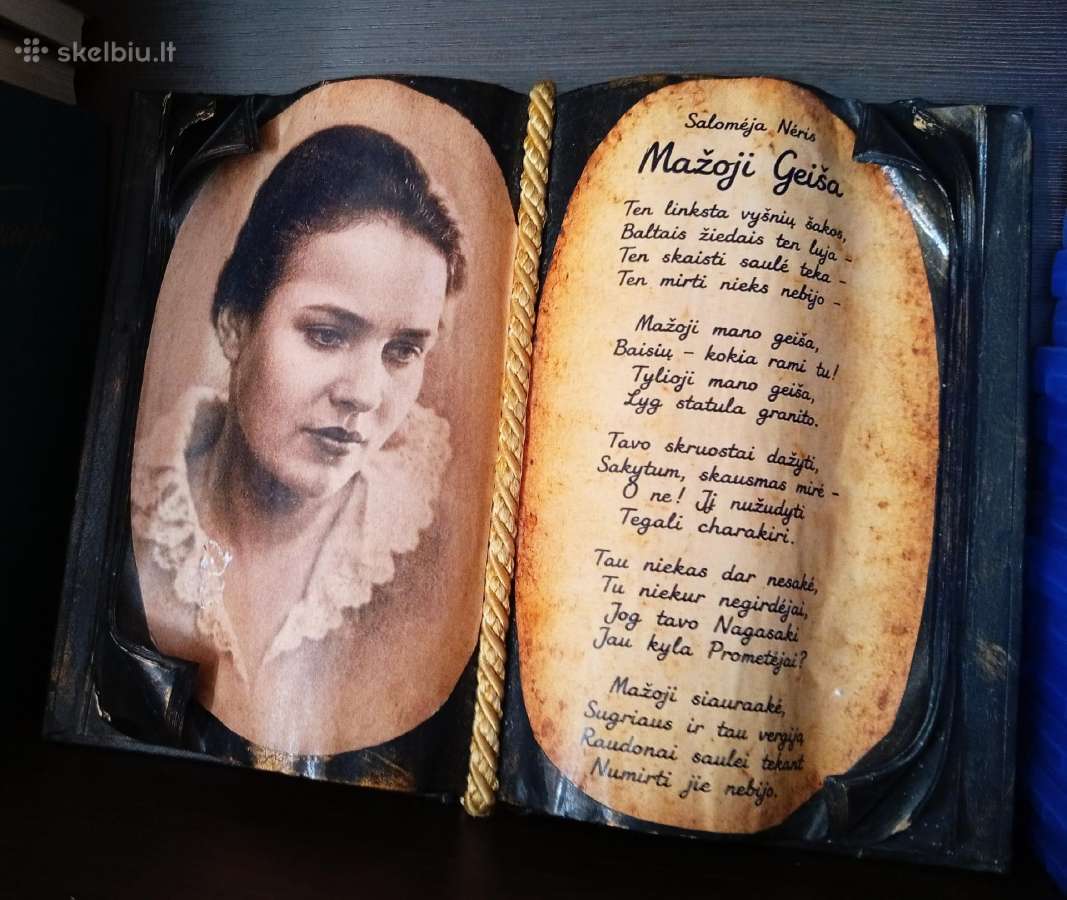 skelbiu.lt
Salomėja Nėris
Mažoji Geiša
Ten linksta vyšnių šakos,
Baltais žiedais ten luja -
Ten skaisti saulė teka -
Ten mirti nieks nebijo -
Mažoji mano geiša,
Baisių - kokia rami tu!
Tylioji mano geiša,
Lyg statula granito.
Tavo skruostai dažyti,
Sakytum, skausmas mirė -
O ne! Jį nužudyti
Tegali charakiri.
Tau niekas dar nesakė,
Tu niekur negirdėjai,
Jog tavo Nagasaki
Jau kyla Prometėjai?
Mažoji siauraakė,
Sugriaus ir tau vergiją
Raudonai saulei tekant
Numirti jie nebijo.